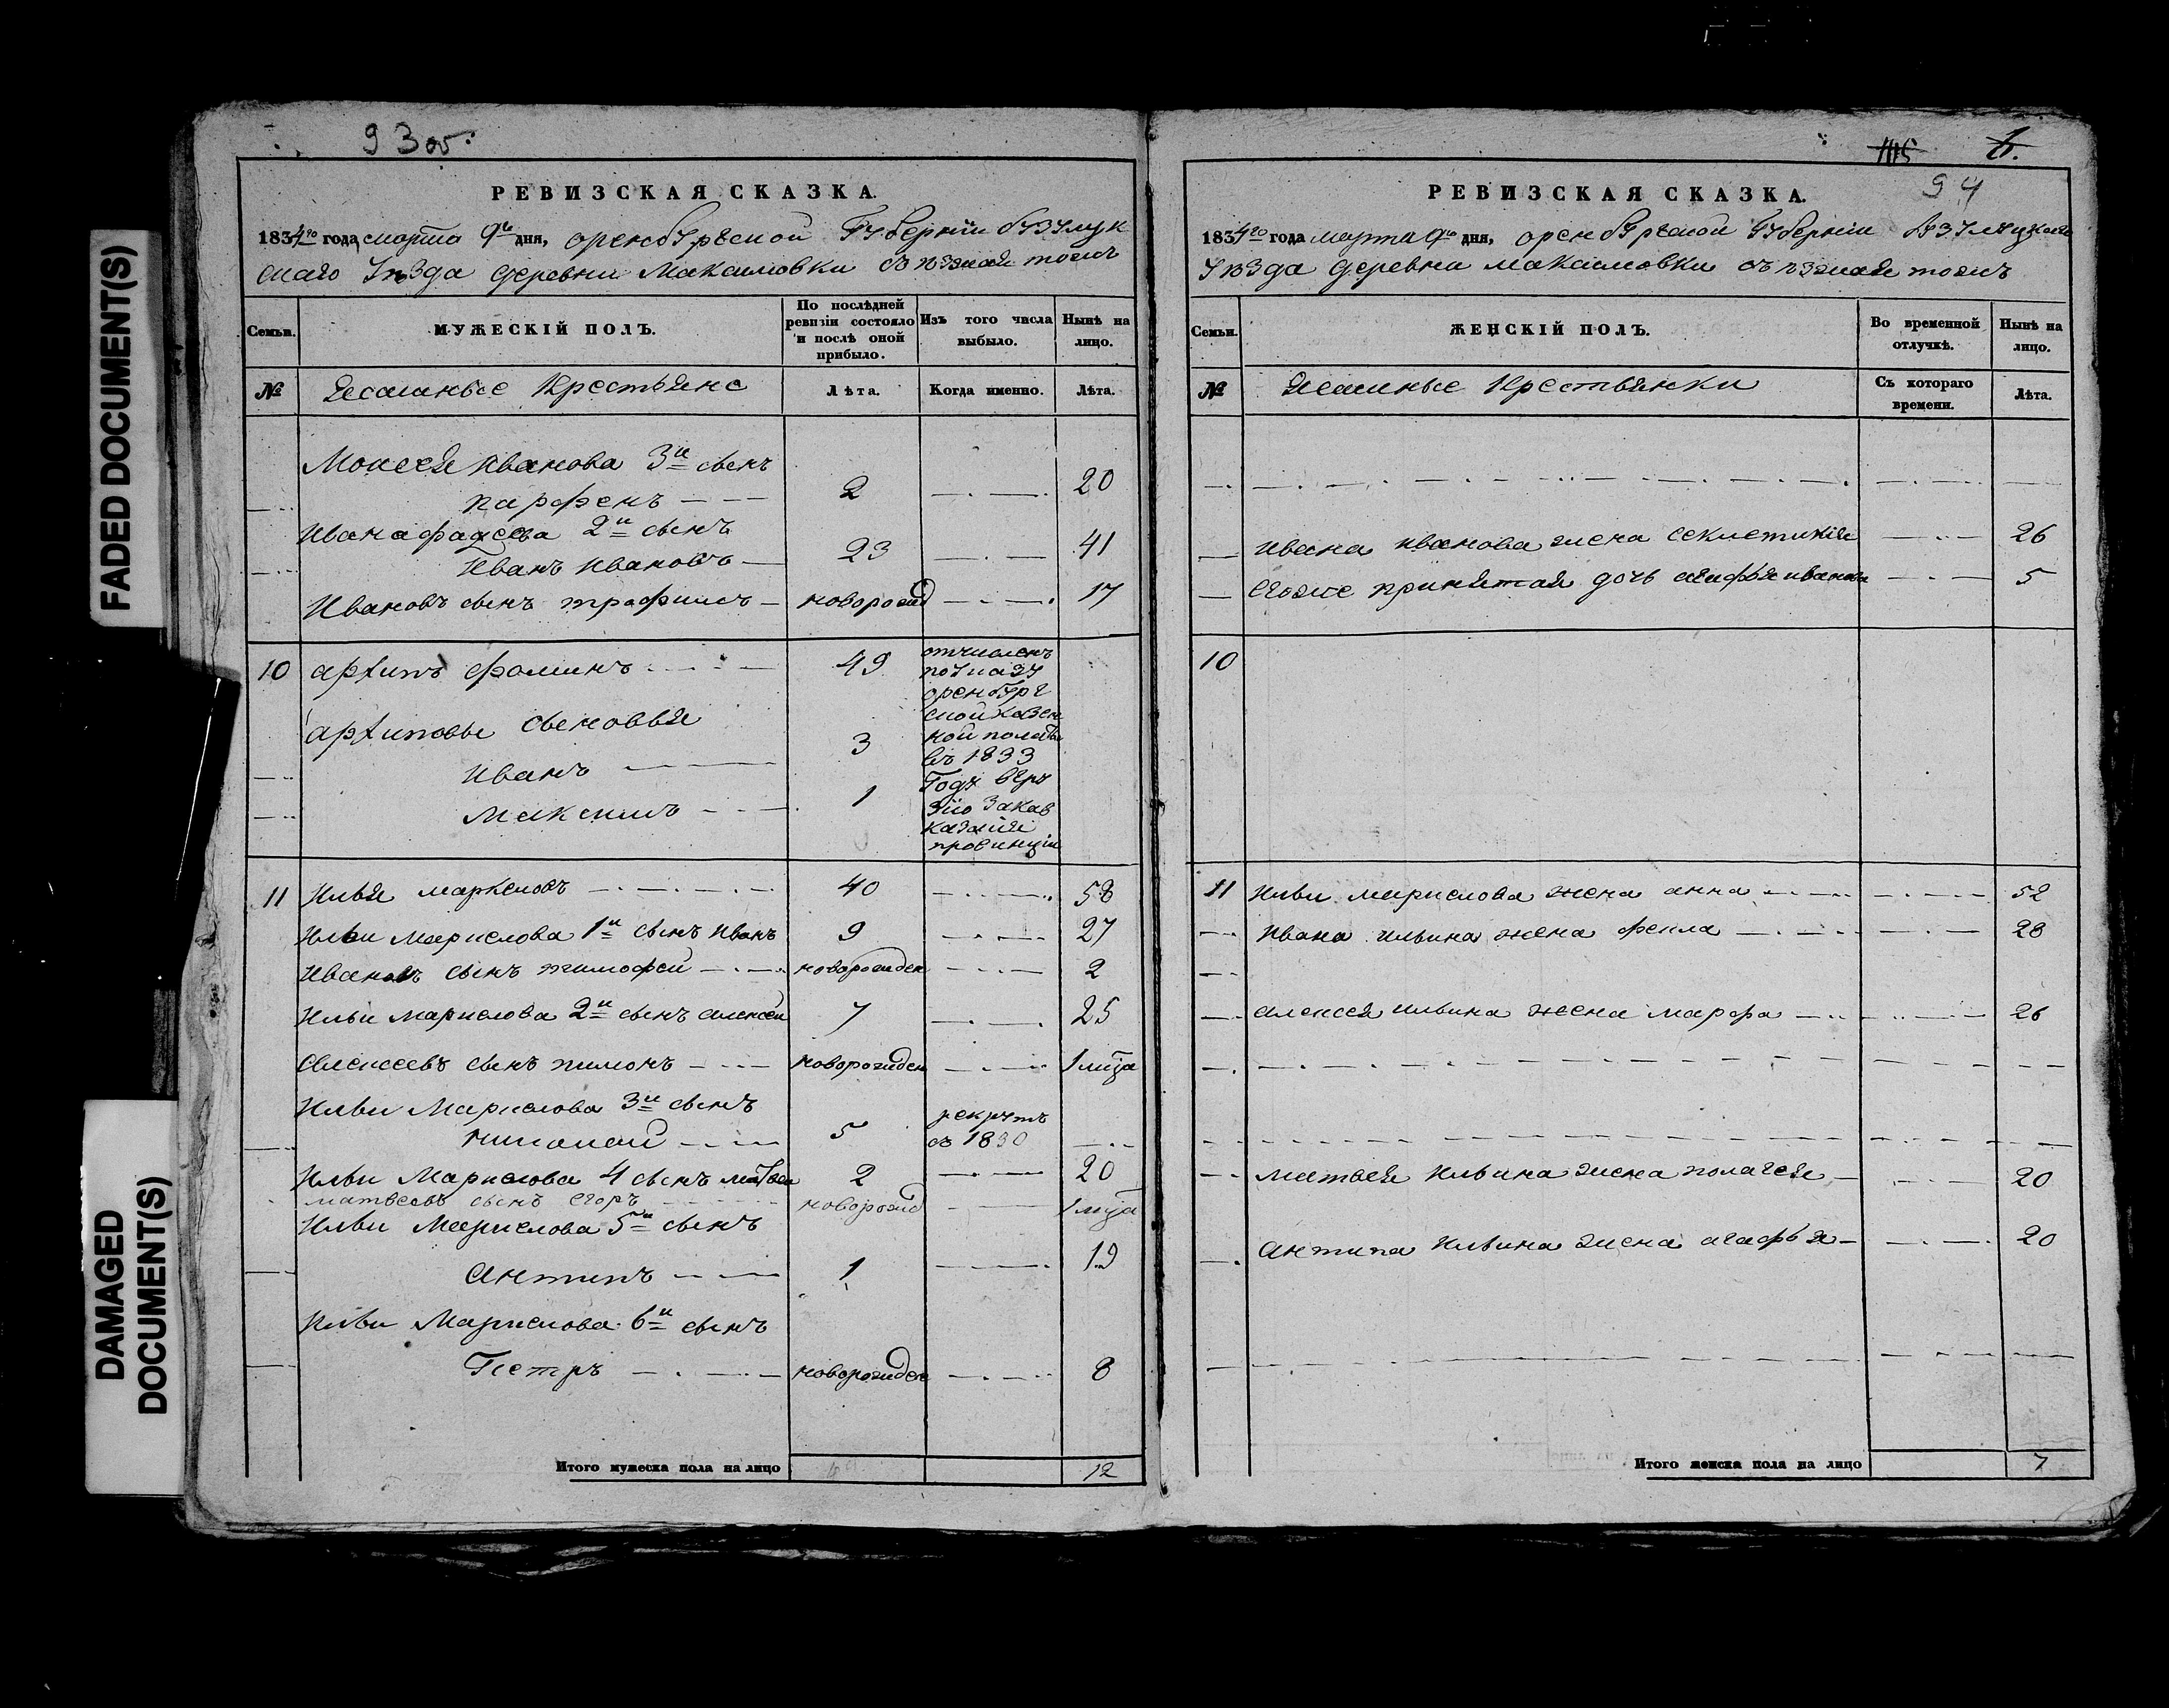 FADED DOCUMENT(S)
DAMAGED
DOCUMENT(S)
93 об.
РЕВИЗСКАЯ СКАЗКА.
1834го года марта 9го дня, оренбургской Губернiи бузулук
скаго уѣзда деревни Максимовки
Семьи.
МУЖЕСКIЙ ПОЛЪ.
По послѣдней
ревизiи состояло
и послѣ оной
прибыло.
Изъ того числа
выбыло.
Нынѣ на
лицо.
№
Ясашные крестьяне
Лѣта.
Когда именно.
Лѣта.
Моисея Иванова 3й сынъ
парфенъ 2 20
Ивана фадеева 2й сынъ
Иванъ Ивановъ 23 41
Ивановъ сынъ трофимъ новорожд 17
10 архипъ фоминъ 49
архиповы сыновья
иванъ 3
максимъ 1
отчисленъ
по указу
оренбург
ской казен
ной полаты
въ 1833
Году вгру
зiю закав
казскiя
провинцiи
11 Илья маркеловъ 40 58
Ильи Маркелова 1й сынъ иванъ 9 27
Ивановъ сынъ тимофей новорожден 2
Ильи Маркелова 2й сынъ алексей 7 25
алексеевъ сынъ пимонъ новорожден 1 мца
Ильи Маркелова 3й сынъ
николай 5 рекрутъ
въ 1830
Ильи Маркелова 4 сынъ матвей 2 20
матвеевъ сынъ егоръ новорожд 1 мца
Ильи Маркелова 5й сынъ
антипъ 1 19
Ильи Маркелова 6й сынъ
Петръ новорожден 8
Итого мужеска пола на лицо 12
6.
94
РЕВИЗСКАЯ СКАЗКА.
1834го года марта 9го дня, оренбургской Губернiи бузулуцкаго
уѣзда деревни максимовки
Семьи.
ЖЕНСКIЙ ПОЛЪ.
Во временной
отлучкѣ.
Нынѣ на
лицо.
№
Ясашные крестьянки
Съ котораго
времени.
Лѣта.
ивана иванова жена секлетинiя 26
Егоже принятая дочь агафья иванова 5
10
11 Ильи маркелова жена анна 52
ивана ильина жена фекла 28
алексея ильина жена марфа 26
матвея ильина жена пелагея 20
антипа ильина жена агафья 20
Итого женска пола на лицо 7